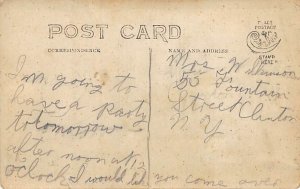 POST CARD
CORRESPONDENCE
NAME AND ADDRESS
PLACE
STAMP
HERE
I'm going to
have a party
tomorrow
after noon at 12
o'clock I would lik you come over
Mrs Wilkinson
55 Fountain
Street Clinton
N Y